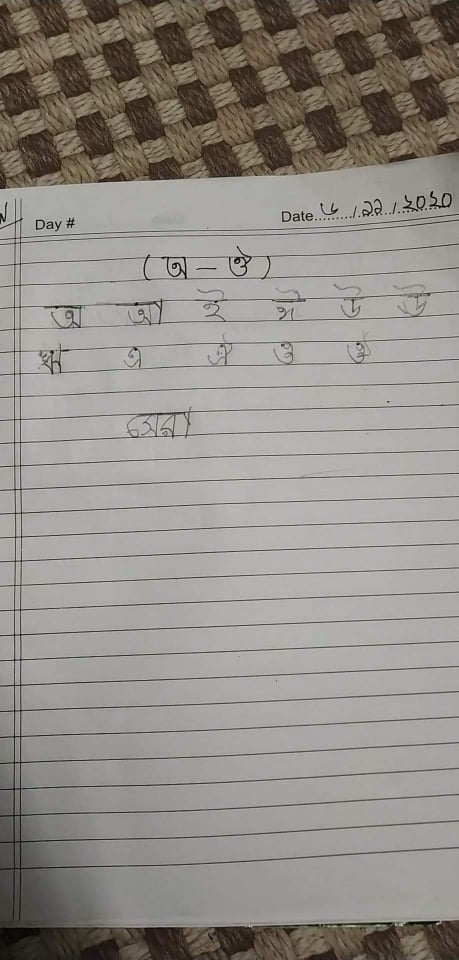 Day #
Date ৬/১১/২০২০
(অ - ঔ)
অ আ ই ঈ উ ঊ
ঋ এ ঐ ও ঔ
সেরা